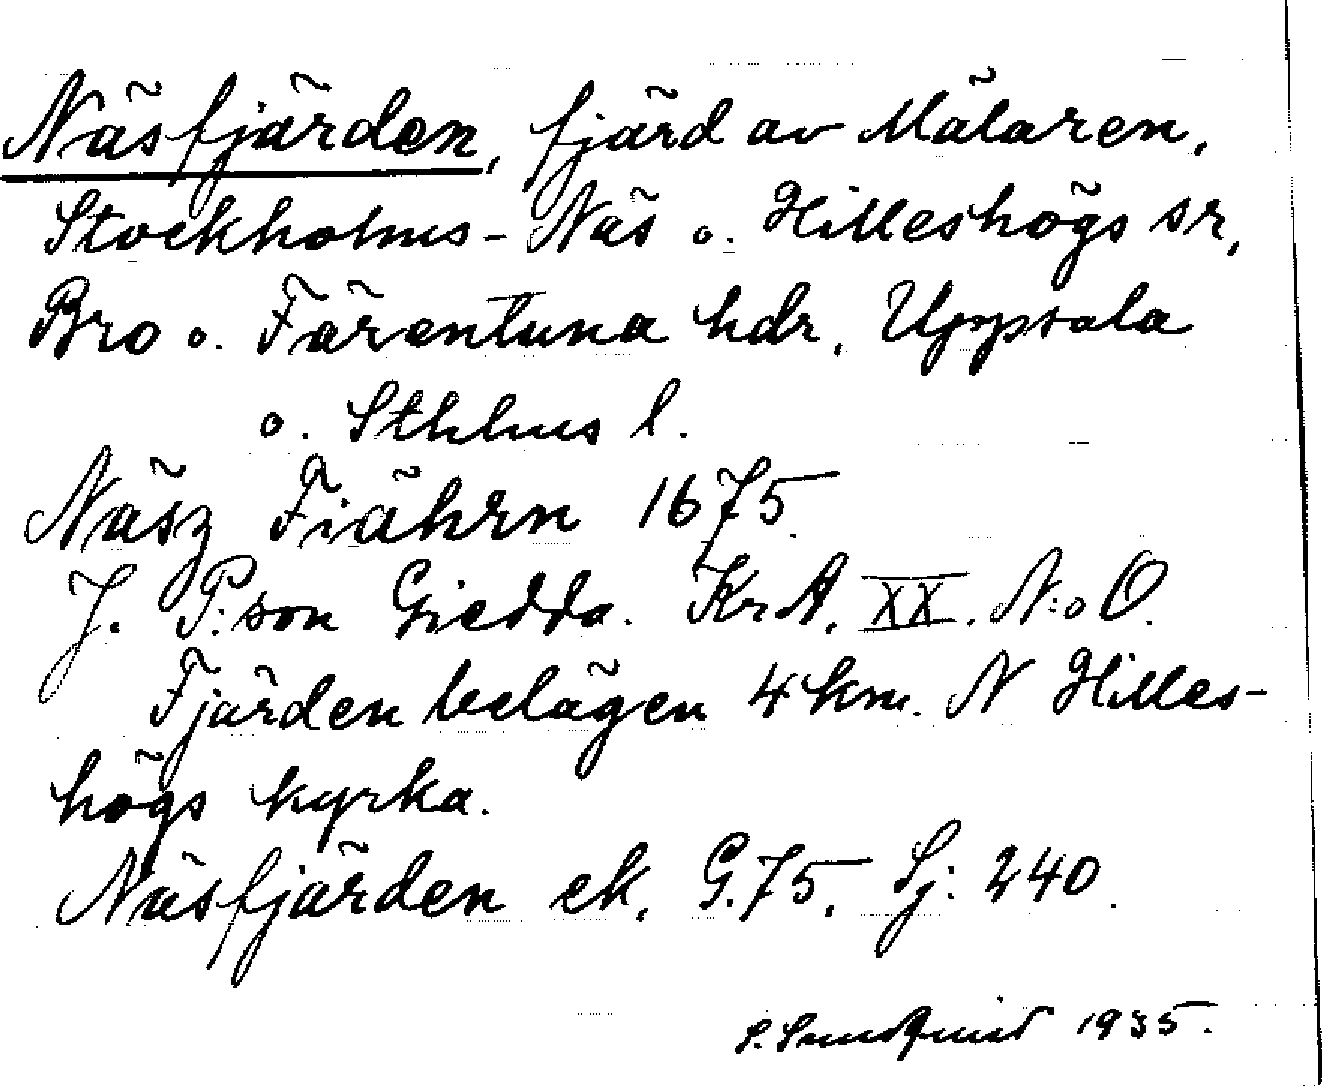 Näsfjärden, fjärd av Mälaren,
Stockholms-Näs o. Hilleshögs sr,
Bro o. Färentuna hdr, Uppsala
o. Sthlms l.
Näsz Fiährn 1675.
J. P:son Giedda. KrA. XX. N:o O.
Fjärden belägen 4 km. N Hilles-
högs kyrka.
Näsfjärden ek. G.75. Sj: 240.
S. Sundquist 1935.